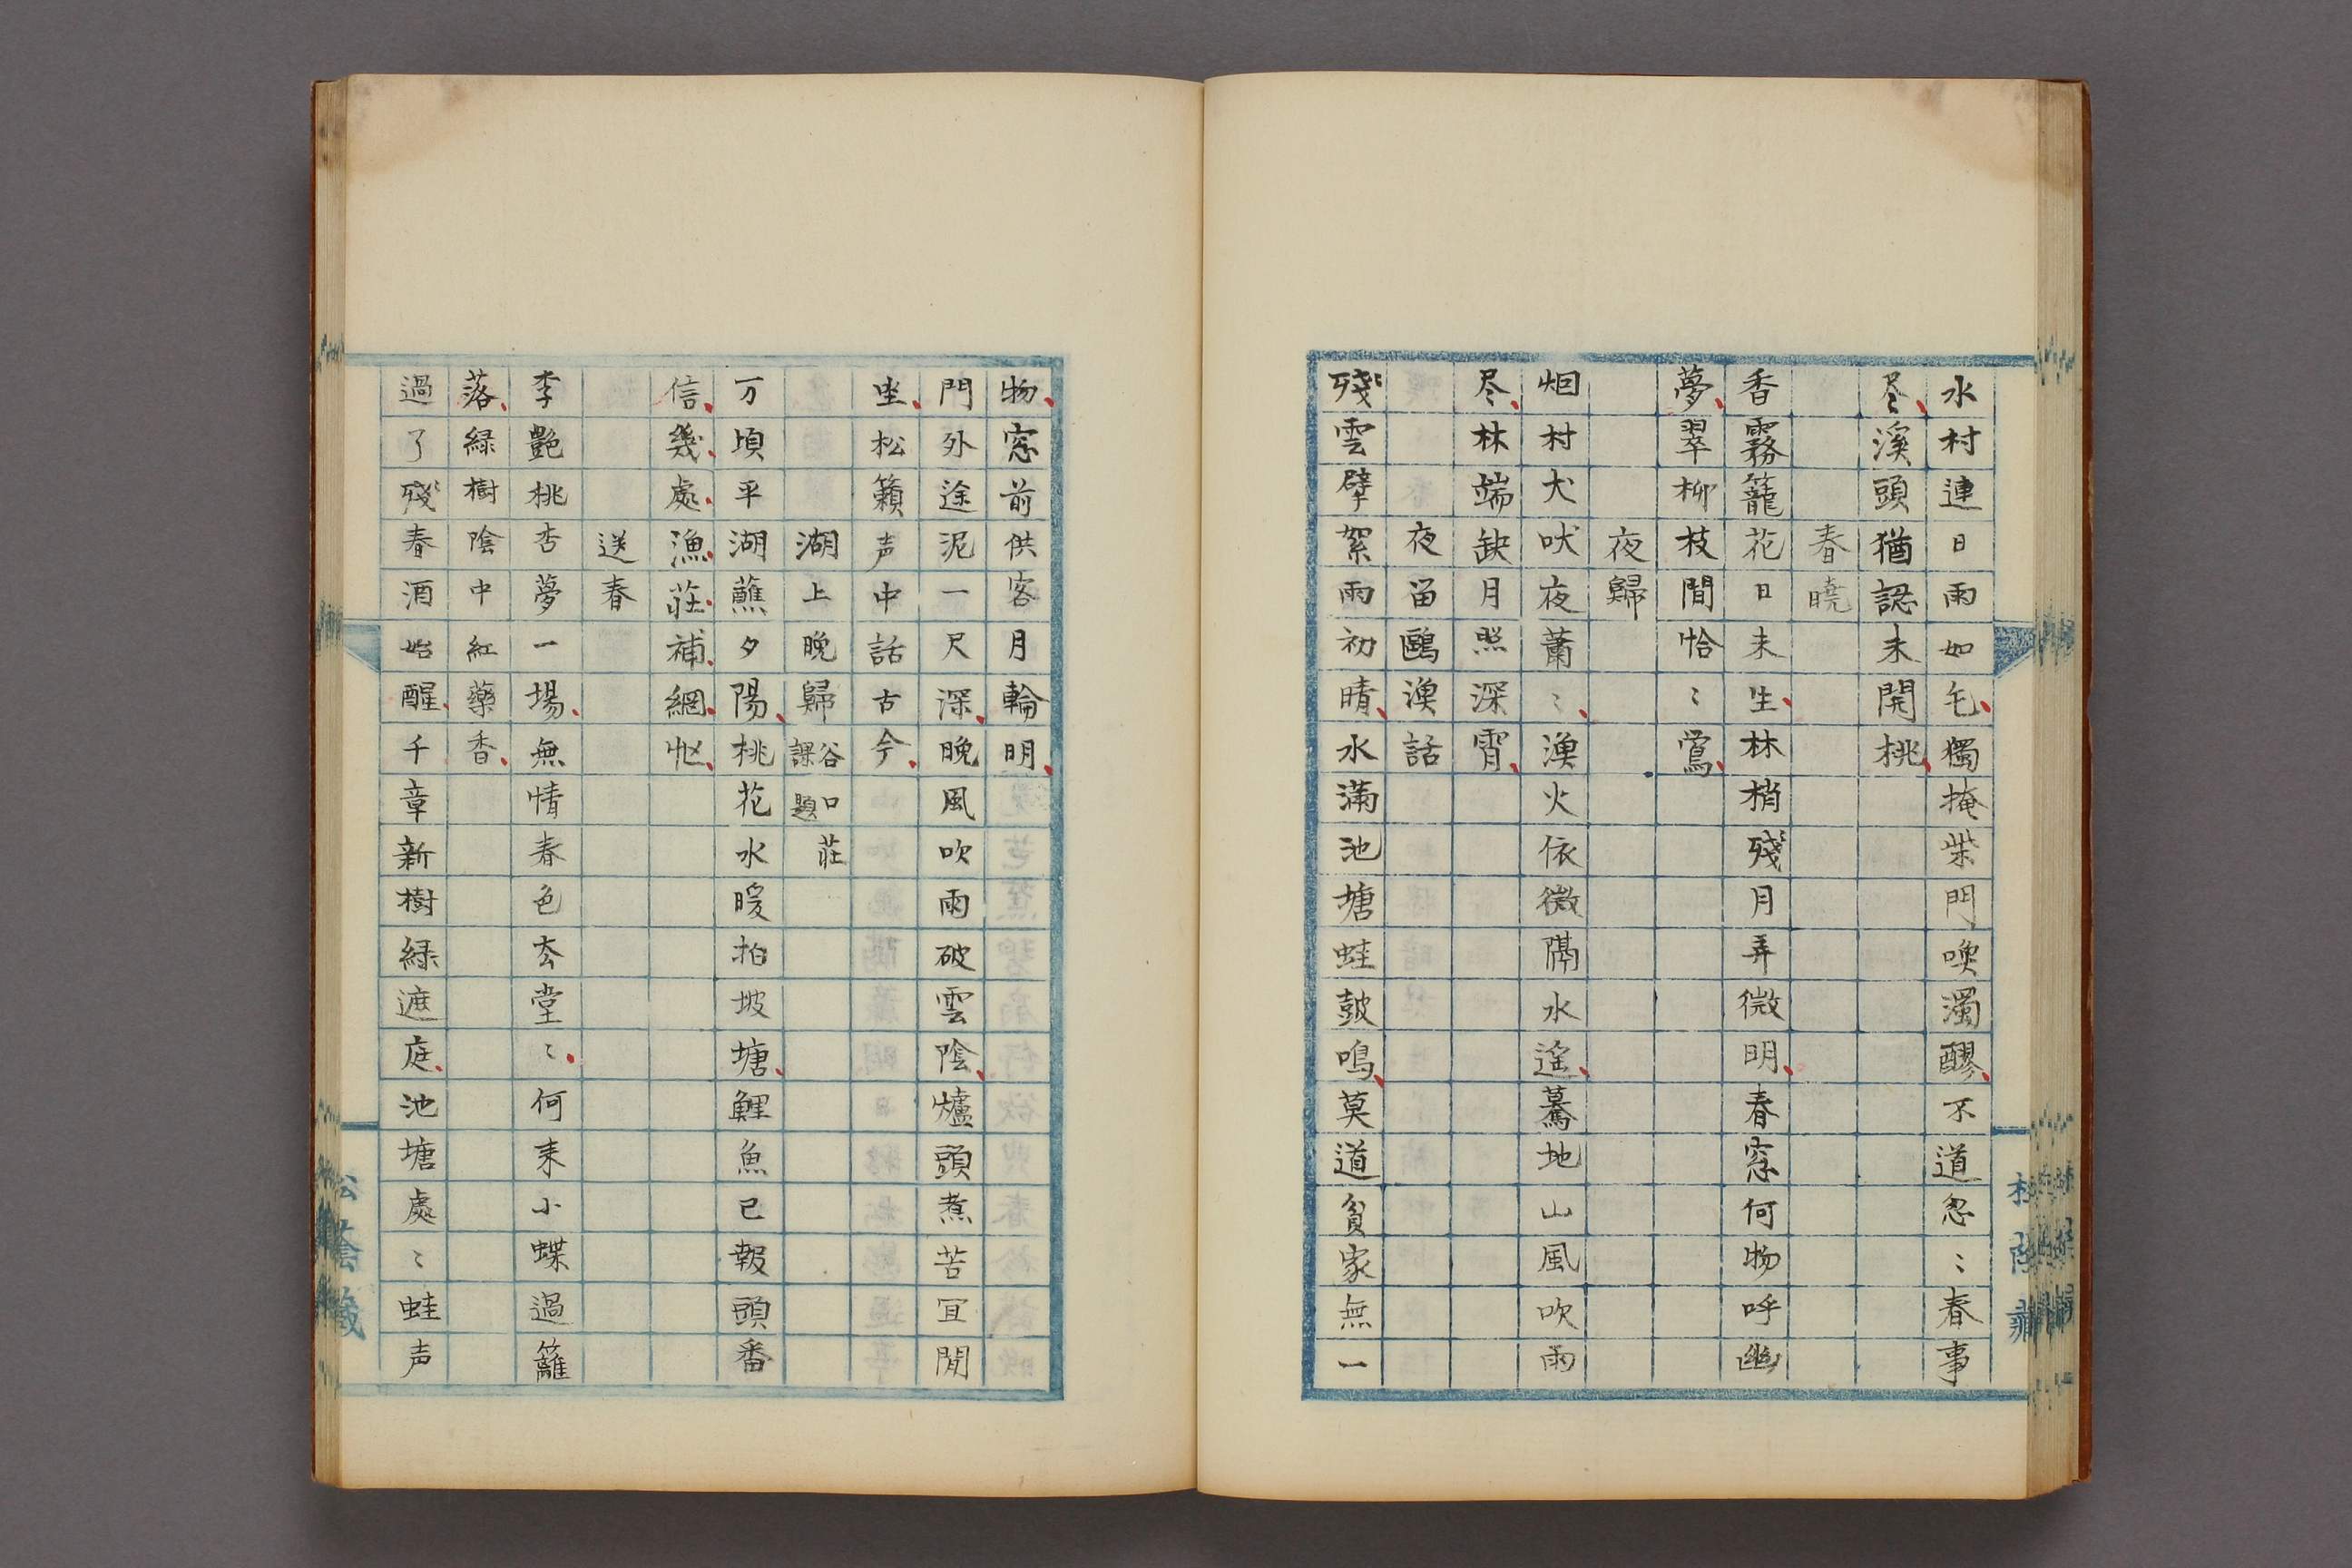 水村連日雨如毛獨掩柴門喚濁醪不道忽〻春事
尽溪頭猶認未開桃
春曉
香霧籠花日未生林梢殘月弄微明春窓何物呼幽
夢翠柳枝間恰〻鴬
夜歸
烟村犬吠夜蕭〻漁火依微隔水遥驀地山風吹雨
尽林端缺月照深霄
夜留鷗漁話
殘雲擘絮雨初晴水滿池塘蛙鼓鳴莫道貧家無一
物窓前供客月輪明
門外途泥一尺深晩風吹雨破雲陰爐頭煮苦宜閒
坐松籟声中話古今
湖上晩歸 谷口荘課題
万頃平湖蘸夕陽桃花水暖拍坡塘鯉魚已報頭番
信幾處漁荘補網忙
送春
李艶桃杏夢一場無情春色去堂〻何来小蝶過籬
落緑樹陰中紅藥香
過了殘春酒始醒千章新樹緑遮庭池塘處〻蛙声
松陰蔵